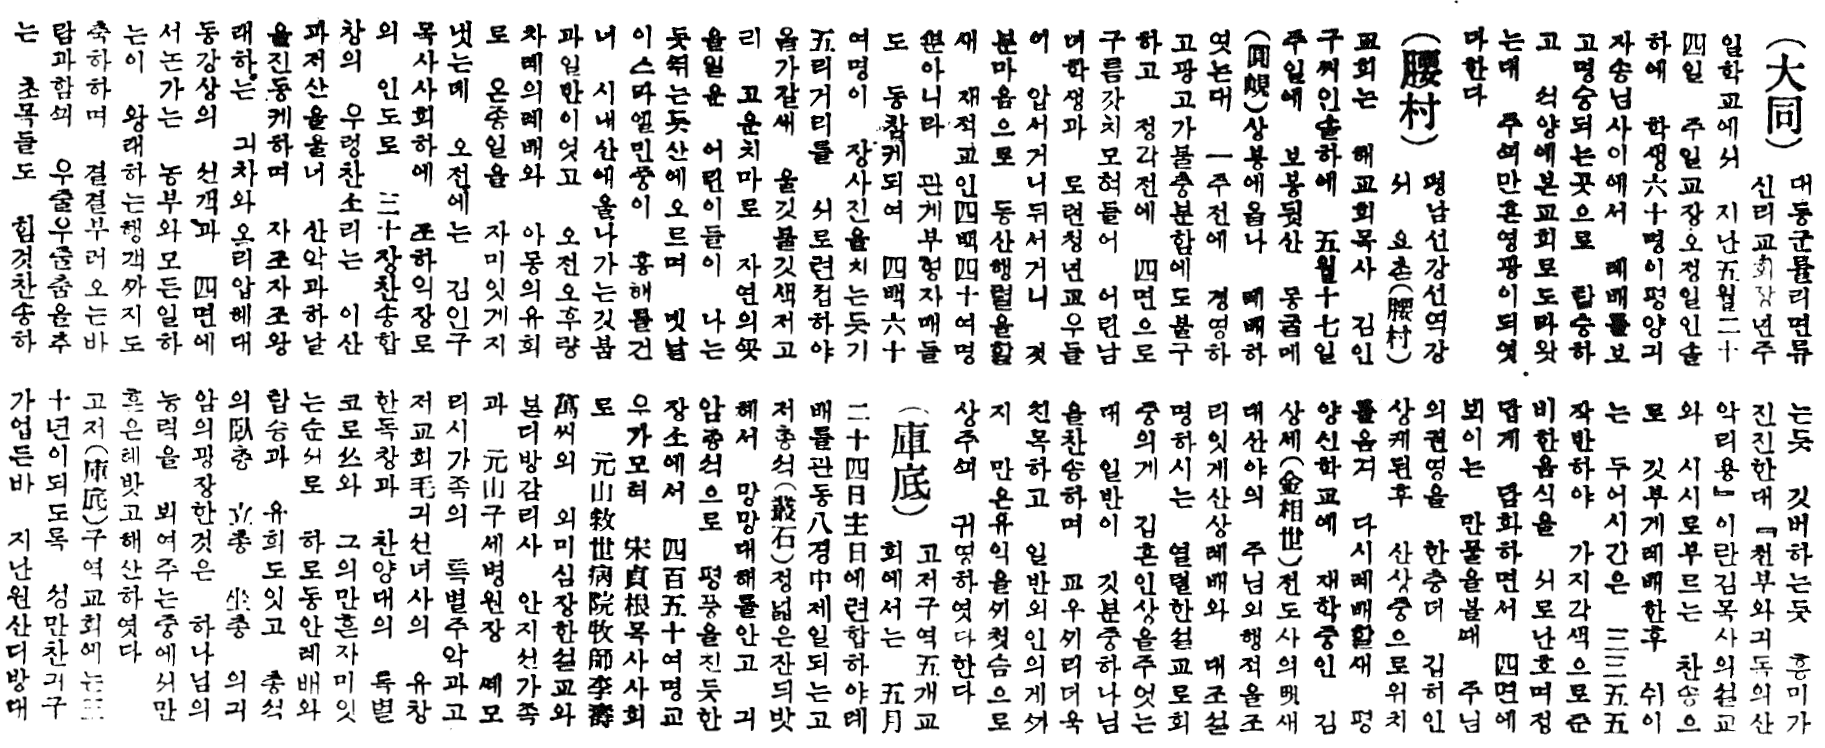 (大同) 대동군률리면류
신리교회장년주
일학교에서 지난五월二十
四일 주일교장오정일인솔
하에 학생六十명이평양긔
자송님사이에서 례배를보
고명승되는곳으로 탑승하
고 석양에본교회로도라왓
는대 주의만흔영광이되엿
다한다
(腰村) 평남선강선역강
서 요촌(腰村)
교회는 해교회목사 김인
구씨인솔하에 五월十七일
주일에 보봉뒷산 몽굼메
(圓峴)상봉에옵나 례배하
엿는대 一주전에 경영하
고광고가불충분함에도불구
하고 정각전에 四면으로
구름갓치모혀들어 어린남
녀학생과 로련청년교우들
이 압서거니뒤서거니 것
분마음으로 동산행렬을할
새 재적교인四백四十여명
뿐아니라 관게부형자매들
도 동참케되여 四백六十
여명이 장사진을치는듯기
五리거리를 서로련접하야
올가갈새 울깃불깃색저고
리 꼬운치마로 자연의꼿
을일운 어린이들이 나는
듯쒸는듯산에오르며 녯날
이스라엘민중이 홍해를건
너 시내산에올나가는깃븜
과일만이엇고 오전오후량
차례의례배와 아몽의유희
로 온종일을 자미잇게지
냇는데 오전에는 김인구
목사사회하에 조하익장로
의 인도로 三十장찬송합
창의 우렁찬소리는 이산
과저산을울녀 산악과하날
을진동케하며 자조자조왕
래하는 긔차와오리압헤대
동강상의 선객과 四면에
서논가는 농부와모든일하
는이 왕래하는행객까지도
축하하며 결결부러오는바
람과함씌 우줄우줄춤을추
는 초목들도 힘것찬송하
는듯 깃버하는듯 흥미가
진진한대『천부와긔독의산
악리용』이란김목사의설교
와 시시로부르는 찬송으
로 깃부게례배한후 쉬이
는 두어시간은 三三五五
작반하야 가지각색으로준
비한음식을 서로난호며정
답게 답화하면서 四면에
뵈이는 만물을볼때 주님
의권영을 한층더 깁허인
상케된후 산상중으로위치
를옴겨 다시례배할새 평
양신학교에 재학중인 김
상세(金相世)전도사의뜻새
대산야의 주님외행적을조
리잇게산상례배와 대조설
명하시는 열렬한설교로회
중의게 김흔인상을주엇는
대 일반이 깃분중하나님
을찬송하며 교우끼리더욱
친목하고 일반외인의게까
지 만은유익을끼첫슴으로
상주씌 귀영하엿다한다
(庫底) 고저구역五개교
회에서는 五月
二十四日主日에련합하야례
배를관동八경中제일되는고
저총석(叢石)정넓은잔듸밧
헤서 망망대해를안고 긔
암층석으로 평풍을진듯한
장소에서 四百五十여명교
우가모혀 宋貞根목사사회
로 元山救世病院牧師李壽
萬씨의 의미심장한설교와
본디방감리사 안지선가족
과 元山구세병원장 쎄모
리시가족의 특별주악과고
저교회毛긔선녀사의 유창
한독창과 찬양대의 특별
코로쓰와 그의만흔자미잇
는순서로 하로동안례배와
탐승과 유희도잇고 총석
의臥총 立총 坐총 의긔
암의광장한것은 하나님의
능력을 뵈여주는중에서만
흔은혜밧고해산하엿다
고저(庫底)구역교회에는三
十년이되도록 성만찬긔구
가업든바 지난원산디방대